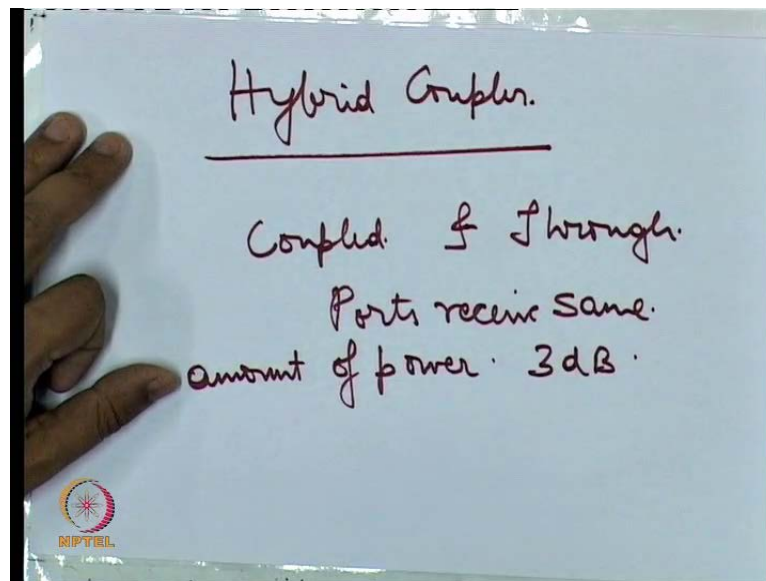 Hybrid Coupler.
Coupled & Through.
Ports receive same.
amount of power. 3dB.
NPTEL